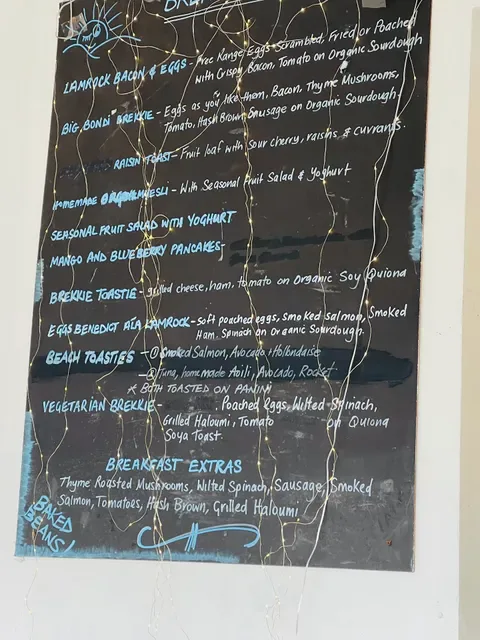 LAMROCK BACON & EGGS - Free Range Eggs Scrambled, Fried or Poached
with Crispy Bacon, Tomato on Organic Sourdough
BIG BONDI BREKKIE - Eggs as you like them, Bacon, Thyme Mushrooms,
Tomato, Hash Brown, Sausage on Organic Sourdough.
RAISIN TOAST - Fruit loaf with sour cherry, raisins, & currants.
HOMEMADE MUESLI - With Seasonal Fruit Salad & Yoghurt
SEASONAL FRUIT SALAD WITH YOGHURT
MANGO AND BLUEBERRY PANCAKES -
BREKKIE TOASTIE - grilled cheese, ham, tomato on Organic Soy Quiona
EGGS BENEDICT A'LA LAMROCK - soft poached eggs, smoked salmon, Smoked
Ham, Spinach on Organic Sourdough.
BEACH TOASTIES - ① Smoked Salmon, Avocado, Hollandaise
- ② Tuna, homemade Aoili, Avocado, Rocket
* BOTH TOASTED ON PANINI
VEGETARIAN BREKKIE - Poached Eggs, Wilted Spinach,
Grilled Haloumi, Tomato on Quiona
Soya Toast.
BREAKFAST EXTRAS
Thyme Roasted Mushrooms, Wilted Spinach, Sausage, Smoked
Salmon, Tomatoes, Hash Brown, Grilled Haloumi
BAKED
BEANS!